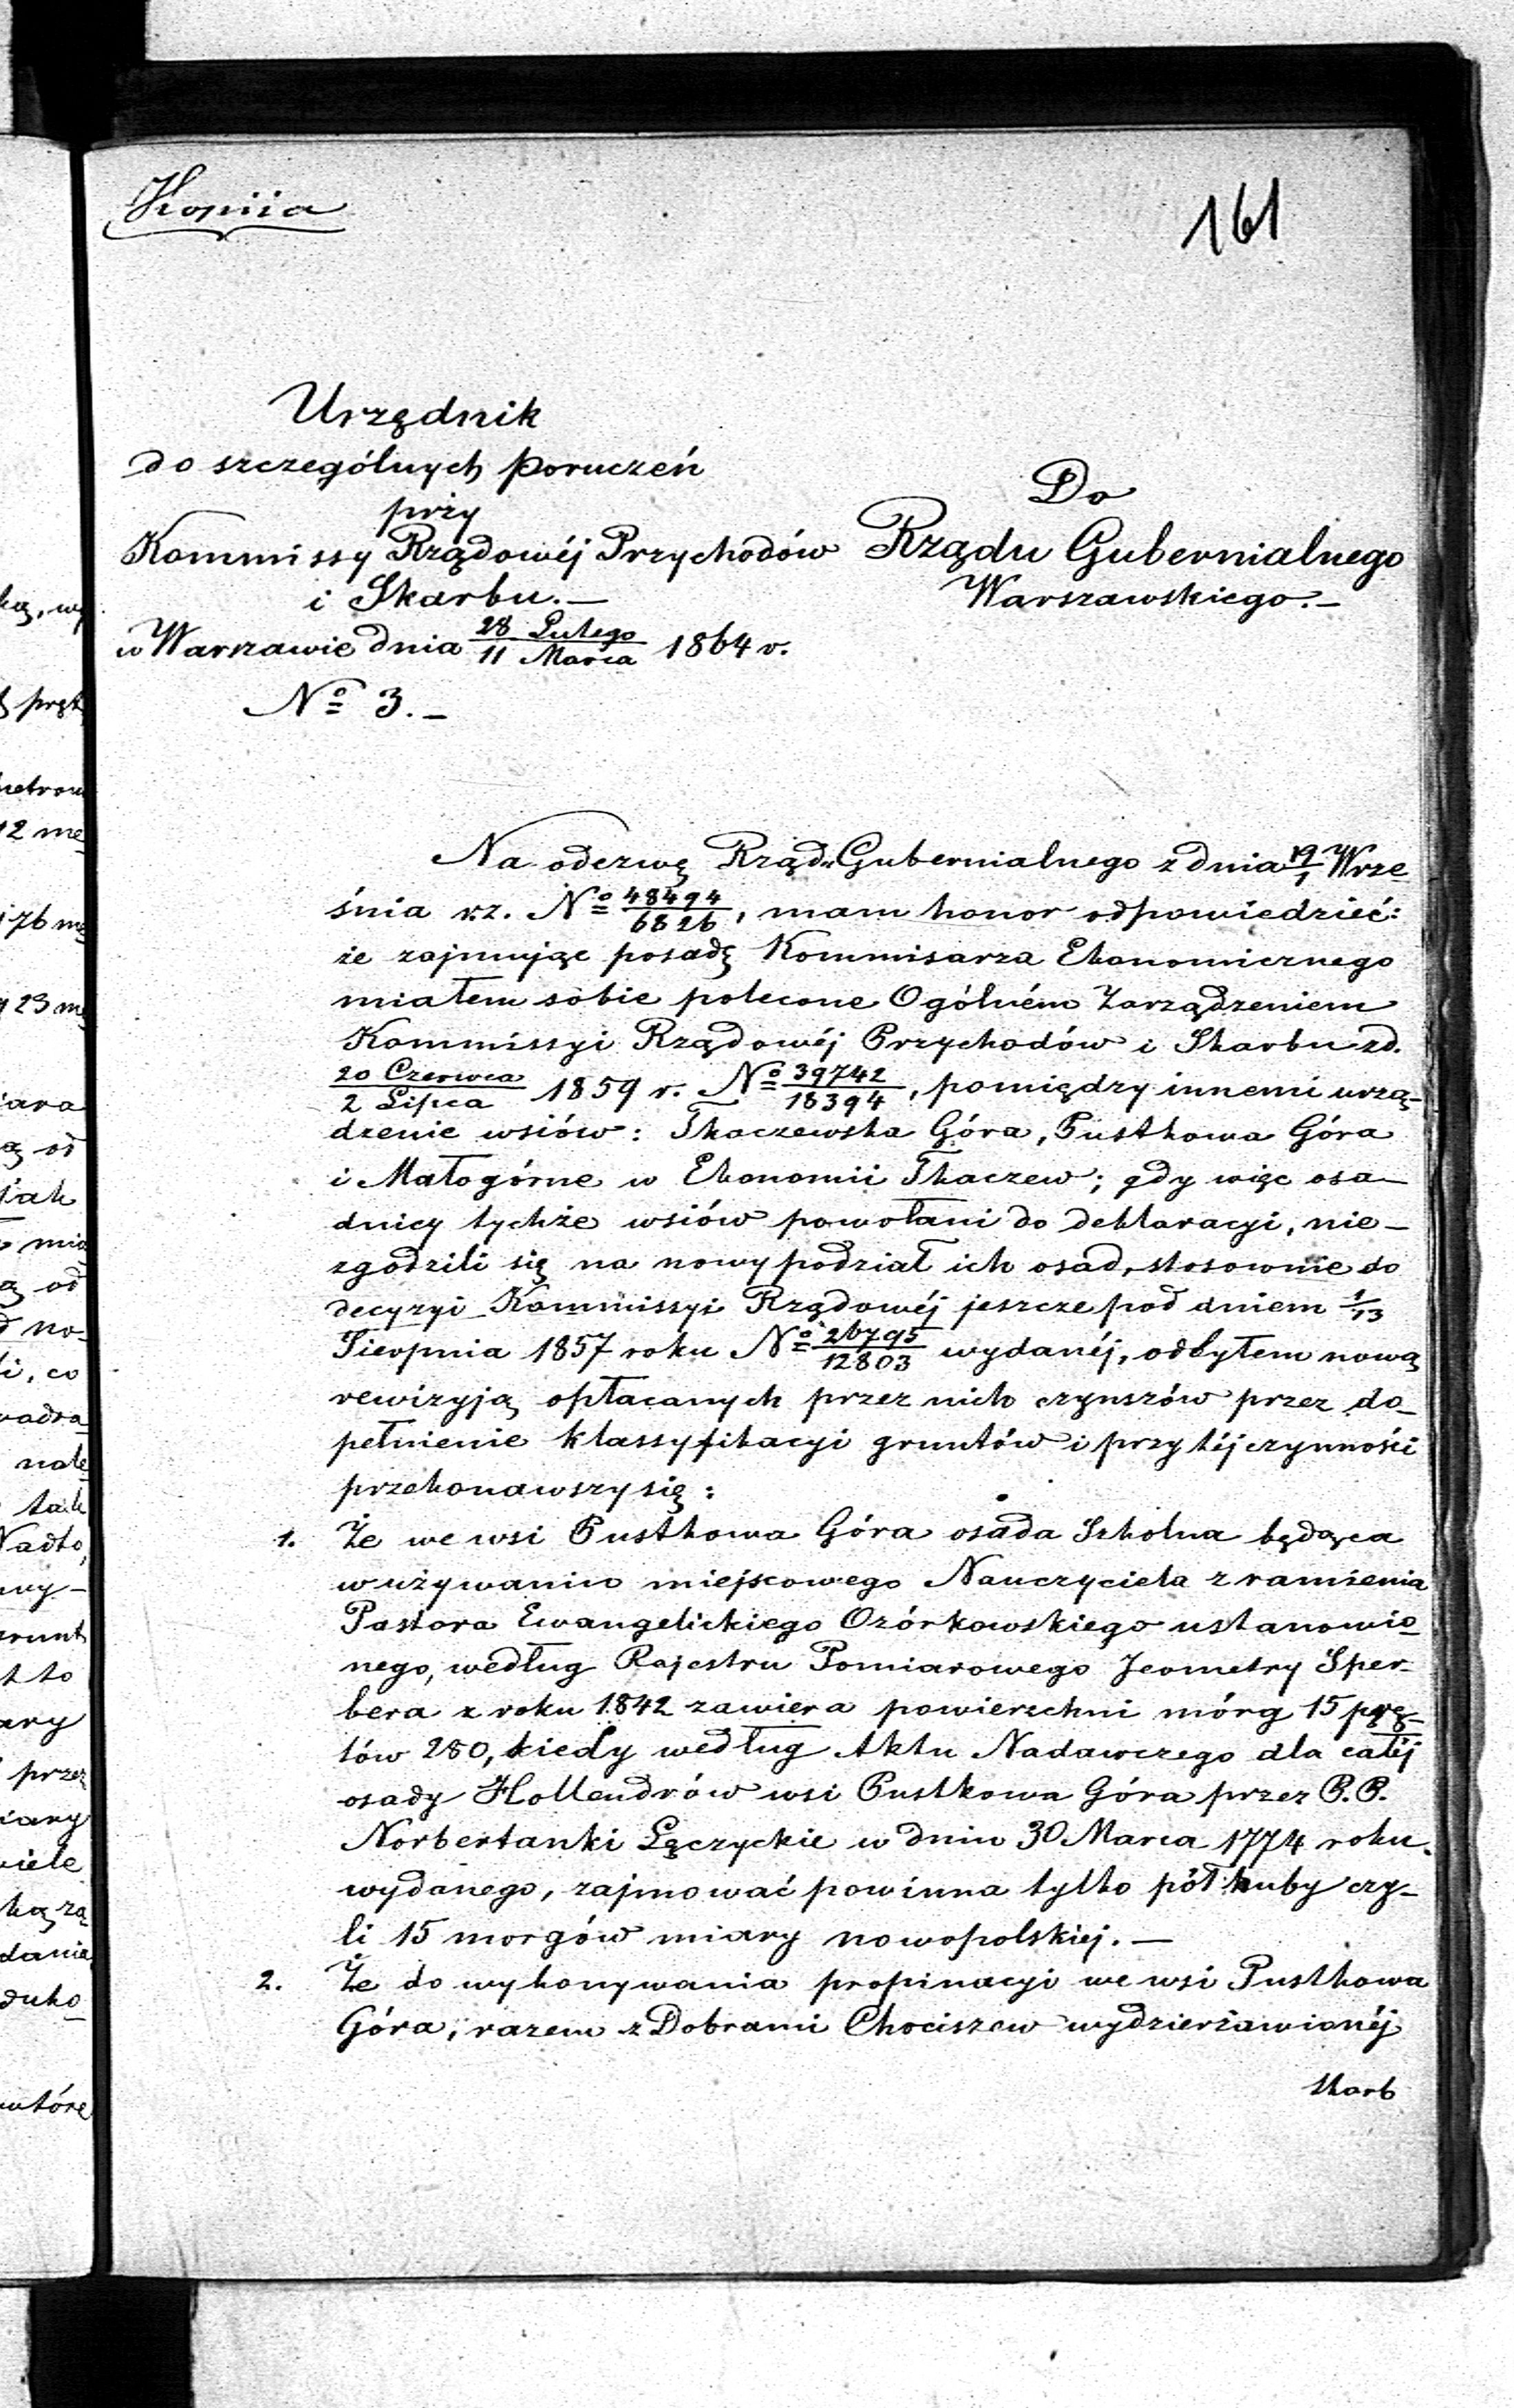 Kopiia
161
Urzędnik
do szczególnych poruczeń
przy
Kommissy Rządowéj Przychodów
i Skarbu.—
w Warszawie dnia 28 Lutego/11 Marca 1864 r.
№ 3.—
Do
Rządu Gubernialnego
Warszawskiego.—
Na odezwę Rządu Gubernialnego z dnia 19/1 Wrze-
śnia r.z. № 48494/6826, mam honor odpowiedzieć:
że zajmując posadę Kommisarza Ekonomicznego
miałem sobie polecone Ogólném Zarządzeniem
Kommissyi Rządowéj Przychodów i Skarbu z d.
20 Czerwca/2 Lipca 1859 r. № 39742/18394, pomiędzy innemi urzą-
dzenie wsiów: Tkaczewska Góra, Pustkowa Góra
i Małogórne w Ekonomii Tkaczew; gdy więc osa-
dnicy tychże wsiów powołani do deklaracyi, nie-
zgodzili się na nowy podział ich osad, stosownie do
decyzyi Kommissyi Rządowéj jeszcze pod dniem 1/13
Sierpnia 1857 roku № 26795/12803 wydanéj, odbyłem nową
rewizyją opłacanych przez nich czynszów przez do-
pełnienie klassyfikacyi gruntów i przy téj czynności
przekonawszy się:
1. Że we wsi Pustkowa Góra osada Szkolna będąca
w używaniu miejscowego Nauczyciela z ramienia
Pastora Ewangelickiego Ozórkowskiego ustanowio-
nego, według Rejestru Pomiarowego Jeometry Sper-
bera z roku 1842 zawiera powierzchni mórg 15 prę-
tów 280, kiedy według Aktu Nadawczego dla całéj
osady Hollendrów wsi Pustkowa Góra przez P.P.
Norbertanki Łęczyckie w dniu 30 Marca 1774 roku
wydanego, zajmować powinna tylko pół huby czy-
li 15 morgów miary nowopolskiej.—
2. Że do wykonywania propinacyi we wsi Pustkowa
Góra, razem z Dobrami Chociszew wydzierżawionéj
skarb
ką, wy
pręt
12 me
176 me
23 me
iara
ą od
jak
mia
ą od
no-
li, co
nale
tak
Nadto,
wy-
grunt
to
przez
wiele
ką za
dania